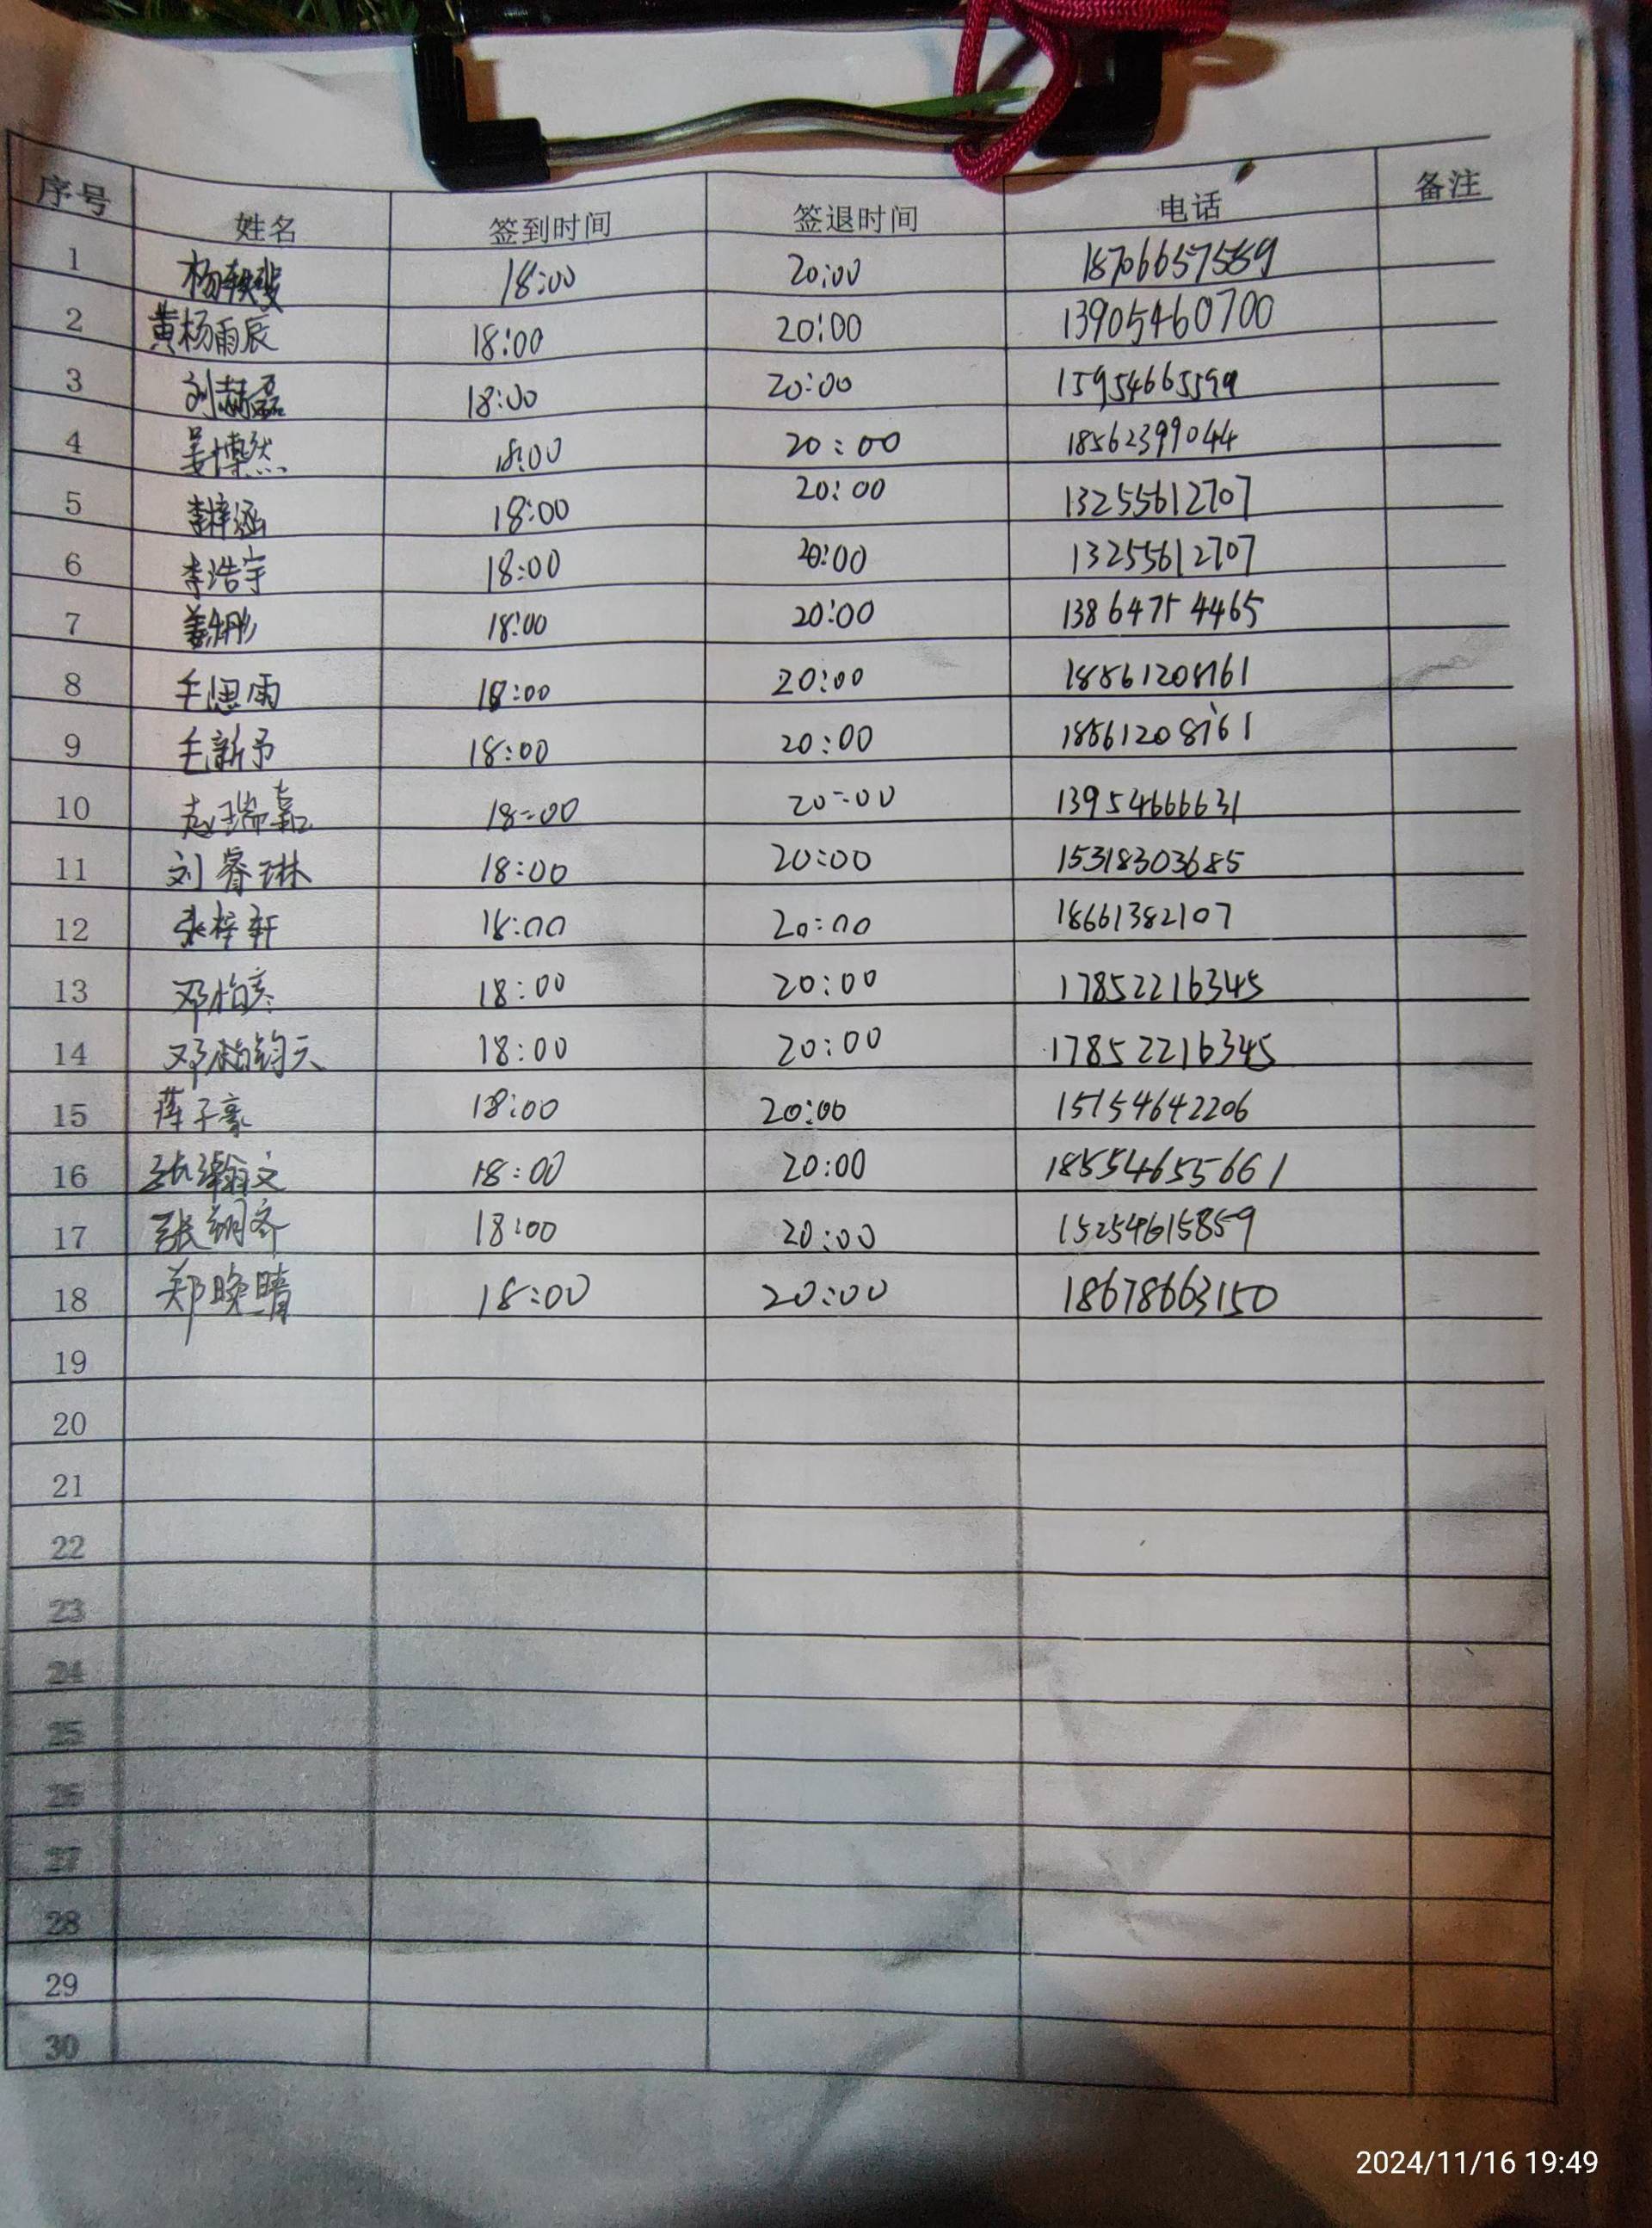 序号 姓名 签到时间 签退时间 电话 备注
1 18:00 20:00 18706657589
2 黄杨雨辰 18:00 20:00 13905460700
3 刘赫磊 18:00 20:00 15954665599
4 姜博然 18:00 20:00 18562399044
5 李梓涵 18:00 20:00 13255612707
6 李浩宇 18:00 20:00 13255612707
7 18:00 20:00 13864754465
8 毛思雨 18:00 20:00 18861208161
9 毛新予 18:00 20:00 18861208161
10 赵瑞嘉 18:00 20:00 13954666631
11 刘睿琳 18:00 20:00 15318303685
12 张梓轩 18:00 20:00 18661382107
13 邓怡彦 18:00 20:00 17852216345
14 18:00 20:00 17852216345
15 子豪 18:00 20:00 15154642206
16 张瀚文 18:00 20:00 18554655661
17 张 齐 18:00 20:00 15254615859
18 郑晚晴 18:00 20:00 18678663150
19
20
21
22
23
24
25
26
27
28
29
30
2024/11/16 19:49